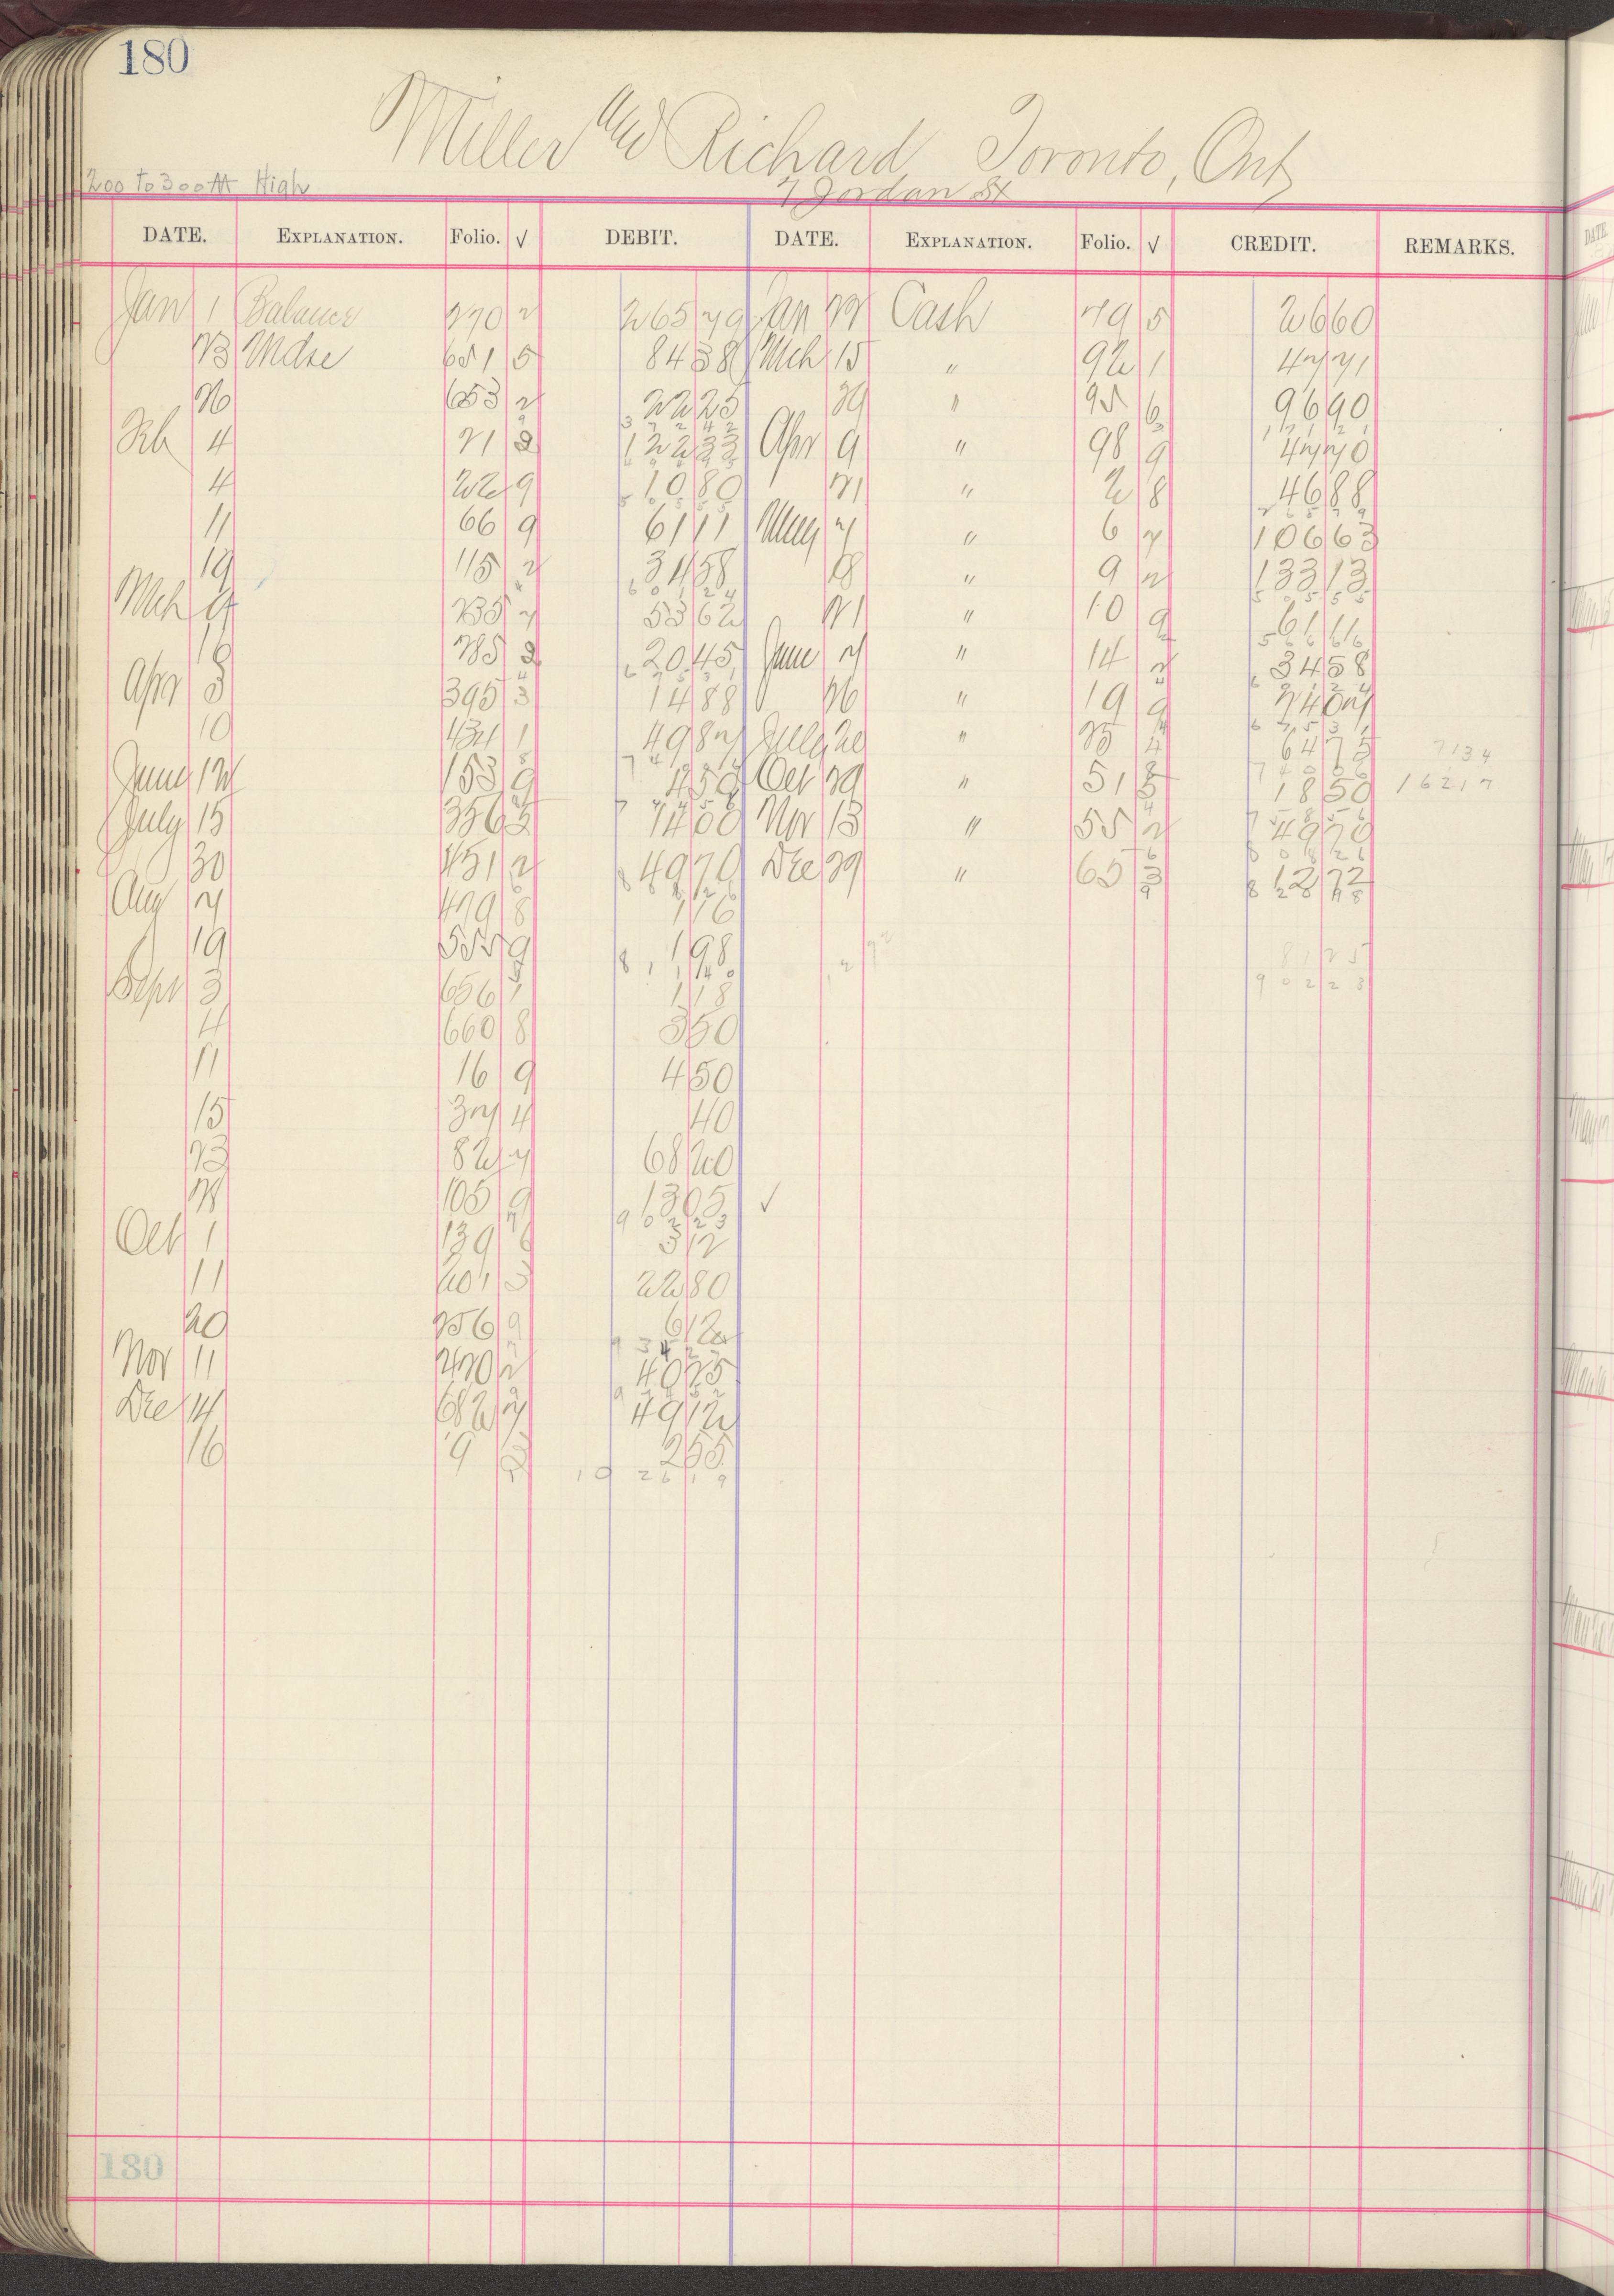 180
Miller and Richard Toronto, Ont
200 to 300 M High 7 Jordan St
DATE. EXPLANATION. Folio. √ DEBIT. DATE. EXPLANATION. Folio. √ CREDIT. REMARKS.
Jan 1 Balance 270 2 265 79 Jan 22 Cash 79 5 26 60
23 Mdse 651 5 84 38 Mch 15 " 92 1 47 71
26 653 2 22 25 29 " 95 6 96 90
3 7 2 4 2 1 7 1 2 1
Feb 4 21 2 122 33 Apr 9 " 98 9 47 70
4 22 9 10 80 21 " 2 8 46 88
11 66 9 61 11 May 7 " 6 7 106 63
19 115 2 34 58 18 " 9 2 133 13
6 0 1 2 4 5 0 5 5 5
Mch 9 235 7 53 62 21 " 10 9 61 11
5 6 6 6 6
285 2 20 45 June 7 " 14 2 34 58
Apr 3 395 3 14 88 26 " 19 9 74 07
6 7 5 3 1
10 434 1 49 87 July 20 " 25 4 64 75 71 34
7 4 0 0 6
June 12 153 9 4 50 Oct 29 " 51 5 18 50 162 17
July 15 356 5 14 00 Nov 13 " 55 2 49 70
8 0 8 2 6
30 451 2 49 70 Dec 29 " 65 3 12 72
8 2 8 4 8
Aug 7 479 8 1 16
19 555 9 1 98 81 25
8 1 1 4 0 9 0 2 2 3
Sept 3 656 1 1 18
4 660 8 3 50
11 16 9 4 50
15 37 4 40
23 82 7 68 20
105 9 13 05 √
9 0 2 2 3
Oct 1 139 6 3 12
11 201 3 22 80
20 256 9 6 12
9 3 4 2 7
Nov 11 470 2 40 25
Dec 14 682 7 49 12
16 9 3 2 55
10 2 6 1 9
180